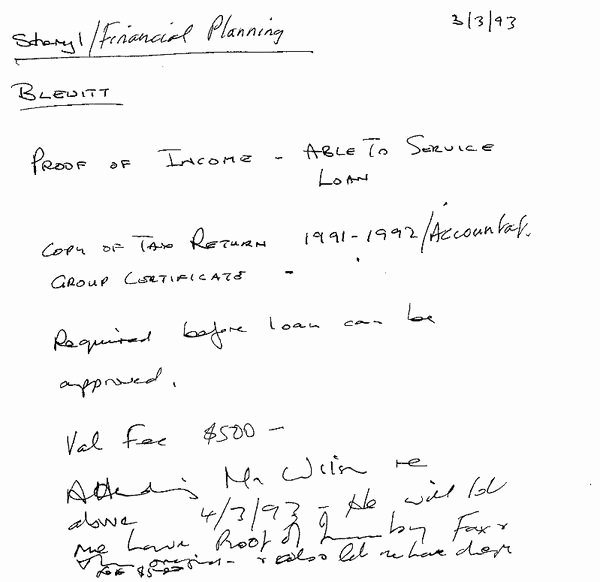 3/3/93
Sheryl/Financial Planning
BLEWITT
PROOF OF INCOME - ABLE TO SERVICE
LOAN
COPY OF TAX RETURN 1991-1992/Accountat.
GROUP CERTIFICATE -
Required before loan can be
approved.
Val Fee $500 -
Attending Mr Wilson re
above 4/3/93 - He will let
me have Proof of by Fax
also let me have